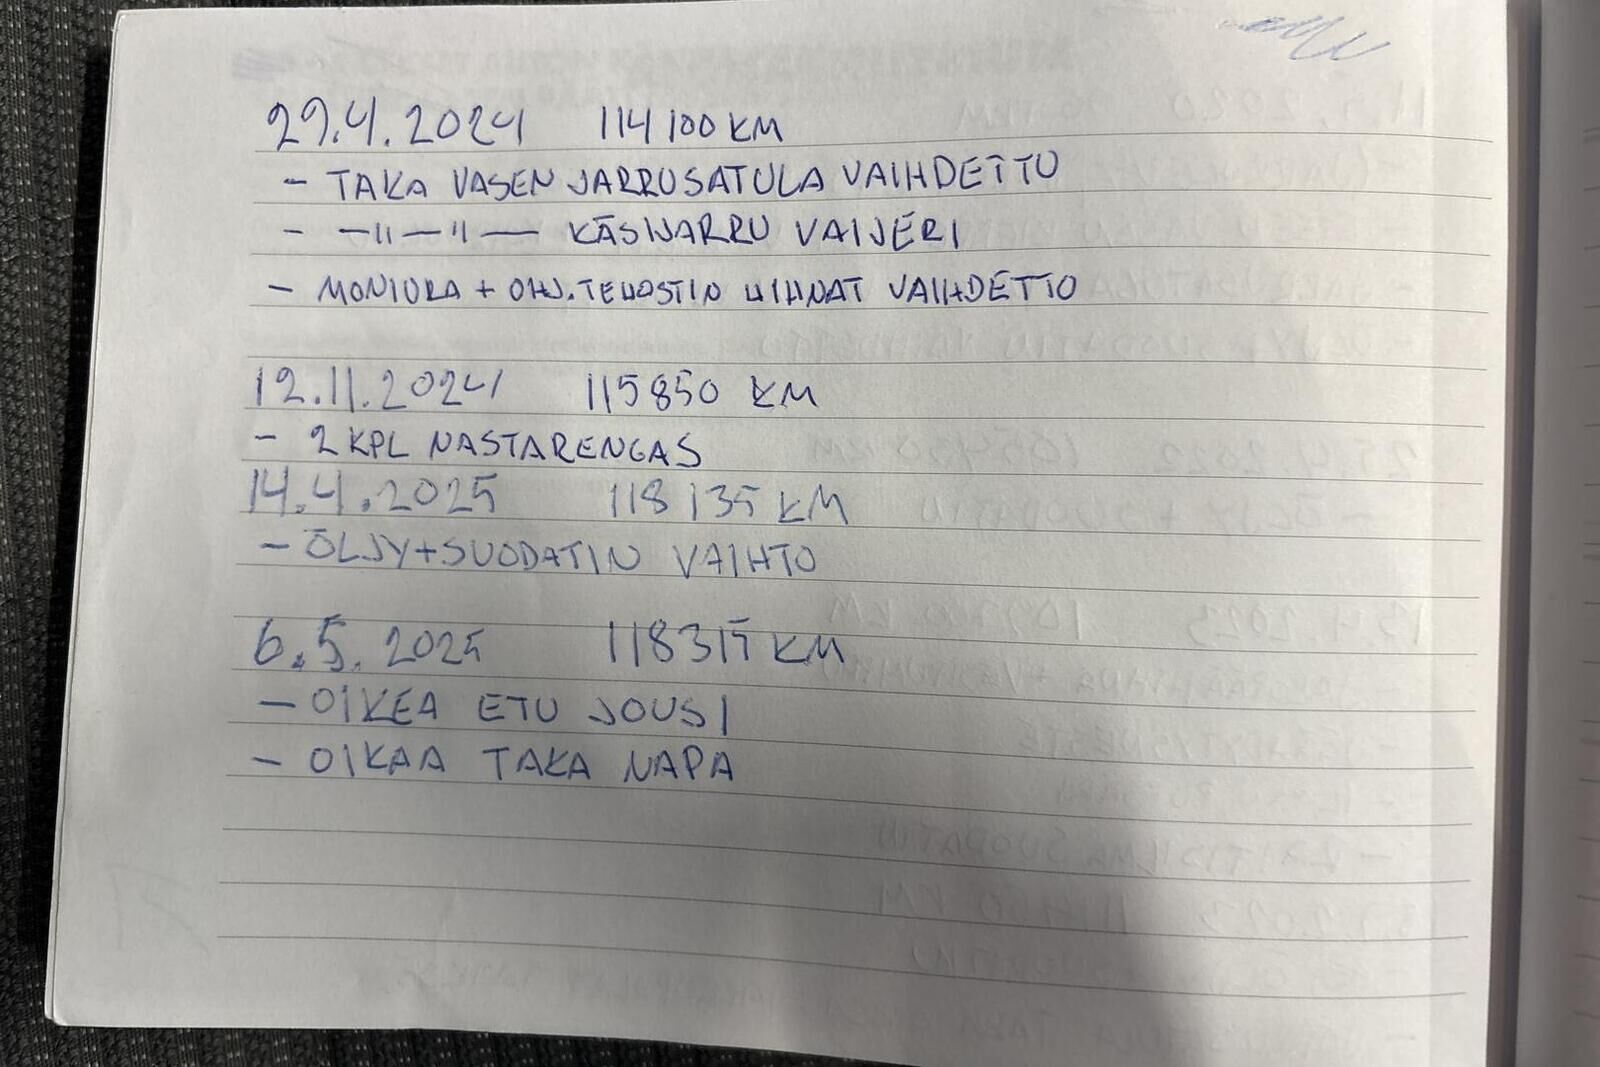 29.4.2024 114100 KM
- TAKA VASEN JARRUSATULA VAIHDETTU
- —"—"— KÄSIJARRU VAIJERI
- MONIURA + OHJ.TEHOSTIN HIHNAT VAIHDETTO
12.11.2024 115850 KM
- 2 KPL NASTARENGAS
14.4.2025 118135 KM
- ÖLJY+SUODATIN VAIHTO
6.5.2025 118315 KM
- OIKEA ETU JOUSI
- OIKAA TAKA NAPA